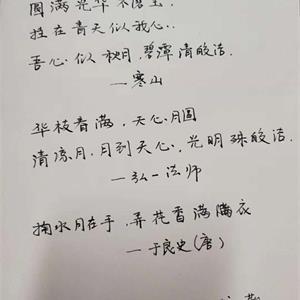 圆满光华不磨莹
挂在青天似我心..
吾心似秋月,碧潭清皎洁.
—寒山
华枝春满,天心月圆
清凉月.月到天心.,光明殊皎洁.
—弘一法师
掬水月在手,弄花香满满衣
—于良史(唐)